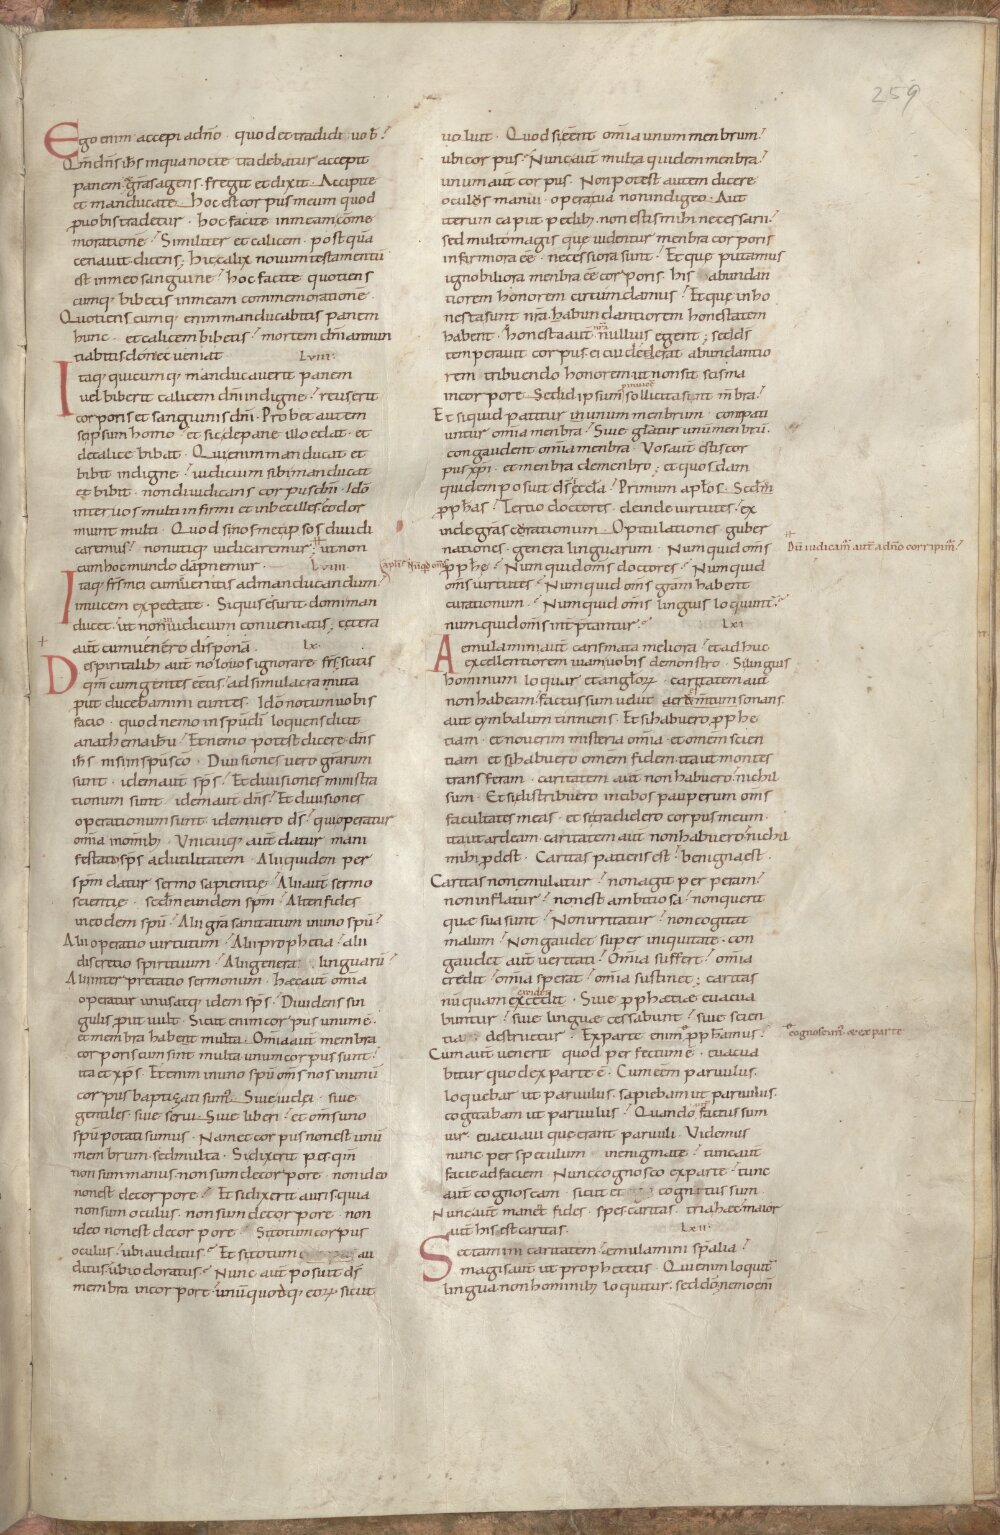 259
Ego enim accepi a dño · quod et tradidi uoƀ ·
Qm̄ dñs ihs in qua nocte tradebatur accepit
panem · gr̄as agens · fregit et dixit · Accipite
et manducate · hoc est corpus meum quod
p uobis tradetur · hoc facite in meam cōme
moratione · Similiter et calicem · post quā
cenauit dicens · hic calix nouum testamentū
est in meo sanguine · hoc facite quotiens
cumq; bibetis in meam commemorationē ·
Quotiens cumq; enim manducabitis panem
hunc · et calicem bibetis · mortem dñi annun
tiabitis donec ueniat Lviii
Itaq; quicumq; manducauerit panem
uel biberit calicem dñi indigne · reus erit
corporis et sanguinis dñi · Probet autem
seipsum homo · et sic de pane illo edat · et
de calice bibat · Qui enim manducat et
bibit indigne · iudicium sibi manducat
et bibit · non diiudicans corpus dñi · Idō
inter uos multi infirmi et inbecilles · et dor
miunt multi · Quod si nosmetipsos diiudi
caremus · non utiq; iudicaremur · ut non
cum hoc mundo dāpnemur · Lviiii
Itaq; fr̄s mei cum cōueniritis ad manducandum ·
inuicem expectate · Si quis esurit domi man
ducet · ut non in iudicium conueniatis · cetera
aut̄ cum uenero disponā · Lx
De spiritalib; aut̄ nolo uos ignorare fr̄s · scitis
qm̄ cum gentes eētis · ad simulacra muta
put ducebamini euntes · Idō notum uobis
facio · quod nemo in spū dī loquens dicit
anathema ihu · Et nemo potest dicere dñs
ihs nisi in spū sco · Diuisiones uero gratiarum
sunt · idem aut̄ sps · Et diuisiones ministra
tionum sunt · idem aut̄ dñs · Et diuisiones
operationum sunt · idem uero ds · qui operatur
omīa in omib; · Unicuiq; aut̄ datur mani
festatio sps ad utilitatem · Alii quidem per
spm datur sermo sapientie · Alii aut̄ sermo
scientie · secdm eundem spm · Alteri fides
in eodem spū · Alii gra sanitatum in uno spū ·
Alii operatio uirtutum · Alii prophetia · alii
discretio spirituum · Alii genera linguarū ·
Alii interpretatio sermonum · hæc aut̄ omīa
operatur unus atq; idem sps · Diuidens sin
gulis put uult · Sicut enim corpus unum ē ·
et membra habent multa · Omīa aut̄ membra
corporis cum sint multa unum corpus sunt ·
ita et xps · Etenim in uno spū om̄s nos in unū
corpus baptizati sumus · Siue iudei · siue
gentiles · siue serui · Siue liberi · et om̄s uno
spū potati sumus · Nam et corpus non est unū
membrum · sed multa · Si dixerit pes · qm̄
non sum manus · non sum de corpore · non ideo
non est de corpore · Et si dixerit auris quia
non sum oculus · non sum de corpore · non
ideo non est de corpore · Si totum corpus
oculus · ubi auditus · Et si totum au
ditus · ubi odoratus · Nunc aut̄ posuit ds
membra in corpore · unū quodq; eorum sicut
uoluit · Quod si eēnt omīa unum menbrum ·
ubi corpus · Nunc aut̄ multa quidem menbra ·
unum aut̄ corpus · Non potest autem dicere
oculos manui · opera tua non indigeo · Aut
iterum caput pedib; · non estis mihi necessarii ·
sed multo magis que uidentur menbra corporis
infirmiora eē · necessiora sunt · Et que putamus
ignobiliora menbra eē corporis · his abundan
tiorem honorem circumdamus · Et que inho
nesta sunt nr̄a · habundantiorem honestatem
habent · honesta aut̄ nr̄a nullius egent · sed ds
temperauit corpus · ei cui deerat abundantio
rem tribuendo honorem · ut non sit scisma
in corpore · Sed id ipsum pinuicē sollicita sunt m̄bra ·
Et si quid patitur unum menbrum · compati
untur omīa menbra · Siue gl̄atur unū menbrū ·
congaudent omīa menbra · Vos aut̄ estis cor
pus xpi · et menbra de menbro · et quosdam
quidem posuit ds in eccl̄a · Primum apl̄os · Secdm
pphas · Tertio doctores · deinde uirtutes · ex
inde gr̄as curationum · Opitulationes guber
nationes · genera linguarum · Numquid om̄s
apl̄i · Nūqd om̄s pphe · Numquid om̄s doctores · Numquid
om̄s uirtutes · Numquid om̄s gr̄am habent
curationum · Numquid om̄s linguis loquunt̄ ·
numquid om̄s int̄p̄tantur · Lxi
Aemulamini aut̄ carismata meliora · et adhuc
excellentiorem uiam uobis demonstro · Si linguis
hominum loquar et anglorum · caritatem aut̄
non habeam · factus sum uelut aeramentum sonans
aut cymbalum tinniens · Et si habuero pphe
tiam · et nouerim misteria omīa · et omem scien
tiam · et si habuero omem fidem · ita ut montes
transferam · caritatem aut̄ non habuero · nichil
sum · Et si distribuero in cibos pauperum om̄s
facultates meas · et si tradidero corpus meum ·
ita ut ardeam · caritatem aut̄ non habuero · nichil
mihi pdest · Caritas patiens est · benigna est ·
Caritas non emulatur · non agit perperam ·
non inflatur · non est ambitiosa · non querit
quæ sua sunt · Non irritatur · non cogitat
malum · Non gaudet super iniquitate · con
gaudet aut̄ ueritati · Omīa suffert · omīa
credit · omīa sperat · omīa sustinet · caritas
nūquam excedit · Siue pphætiæ euacua
buntur · siue linguæ cessabunt · siue scien
tia destruetur · Ex parte enim pphamus ·
Cum aut̄ uenerit quod perfectum ē · euacua
bitur quod ex parte ē · Cum eēm paruulus ·
loquebar ut paruulus · sapiebam ut paruulus ·
cogitabam ut paruulus · Quando factus sum
uir · euacuaui que erant paruuli · Videmus
nunc per speculum in enigmate · tunc aut̄
facie ad faciem · Nunc cognosco ex parte · tunc
aut̄ cognoscam · sicut et cognitus sum ·
Nunc aut̄ manet fides · spes caritas · tria hæc · maior
aut̄ his est caritas · Lxii
Sectamini caritatem · emulamini spalia ·
magis aut̄ ut prophetetis · Qui enim loquit̄
lingua · non hominib; loquitur · sed dō · nemo enī
Dū iudicam̄ aut̄ a dño corripim̄ ·
cognoscim̄ · & ex parte